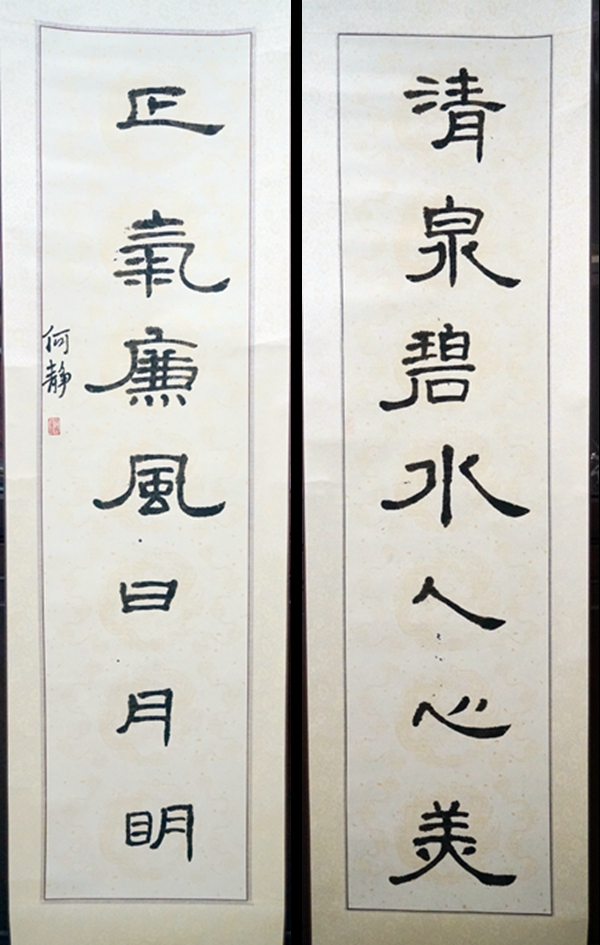 清泉碧水人心美
正氣廉風日月明
何静